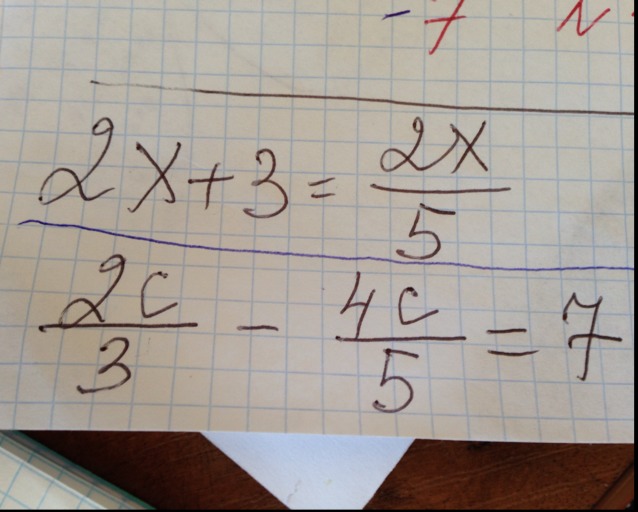 -7 N
2x+3=2x/5
2c/3 - 4c/5 = 7